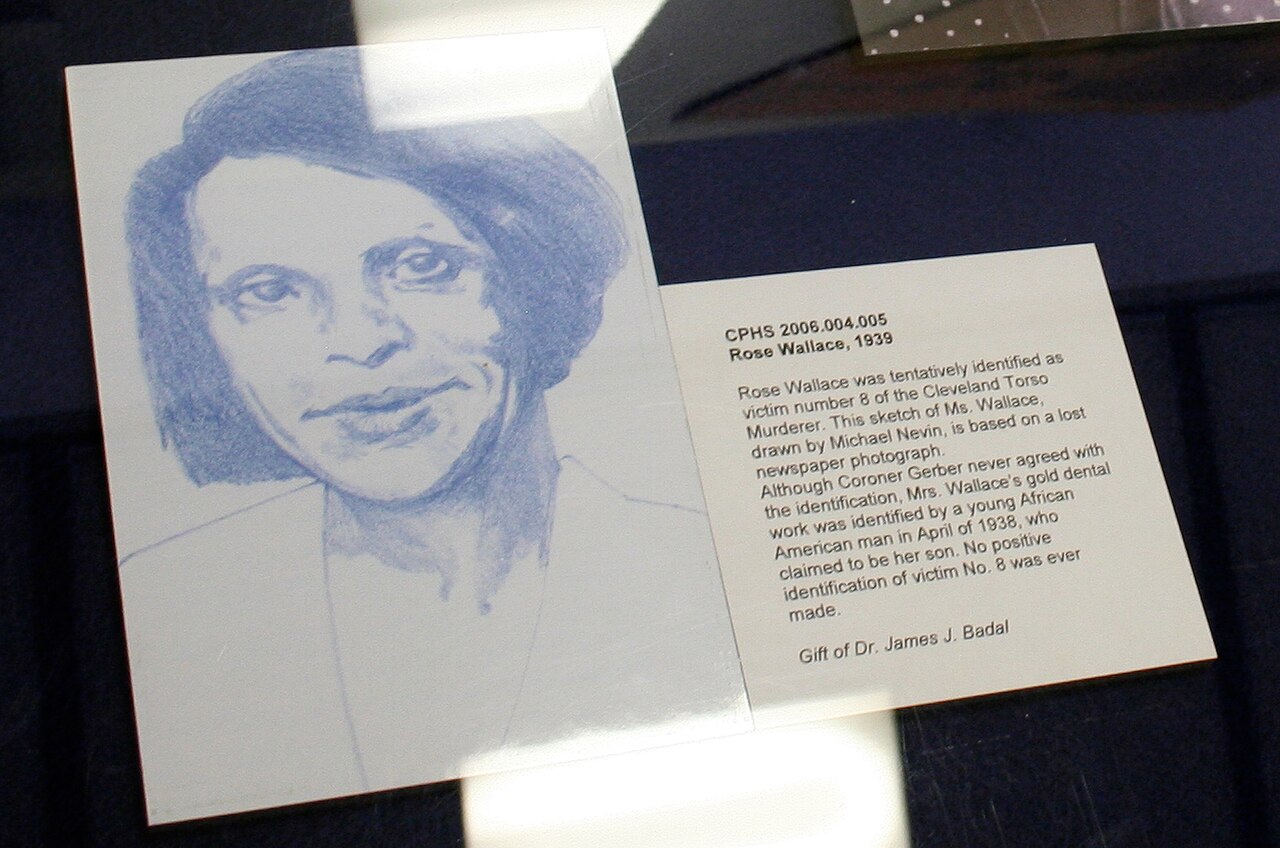 CPHS 2006.004.005
Rose Wallace, 1939
Rose Wallace was tentatively identified as
victim number 8 of the Cleveland Torso
Murderer. This sketch of Ms. Wallace,
drawn by Michael Nevin, is based on a lost
newspaper photograph.
Although Coroner Gerber never agreed with
the identification, Mrs. Wallace's gold dental
work was identified by a young African
American man in April of 1938, who
claimed to be her son. No positive
identification of victim No. 8 was ever
made.
Gift of Dr. James J. Badal